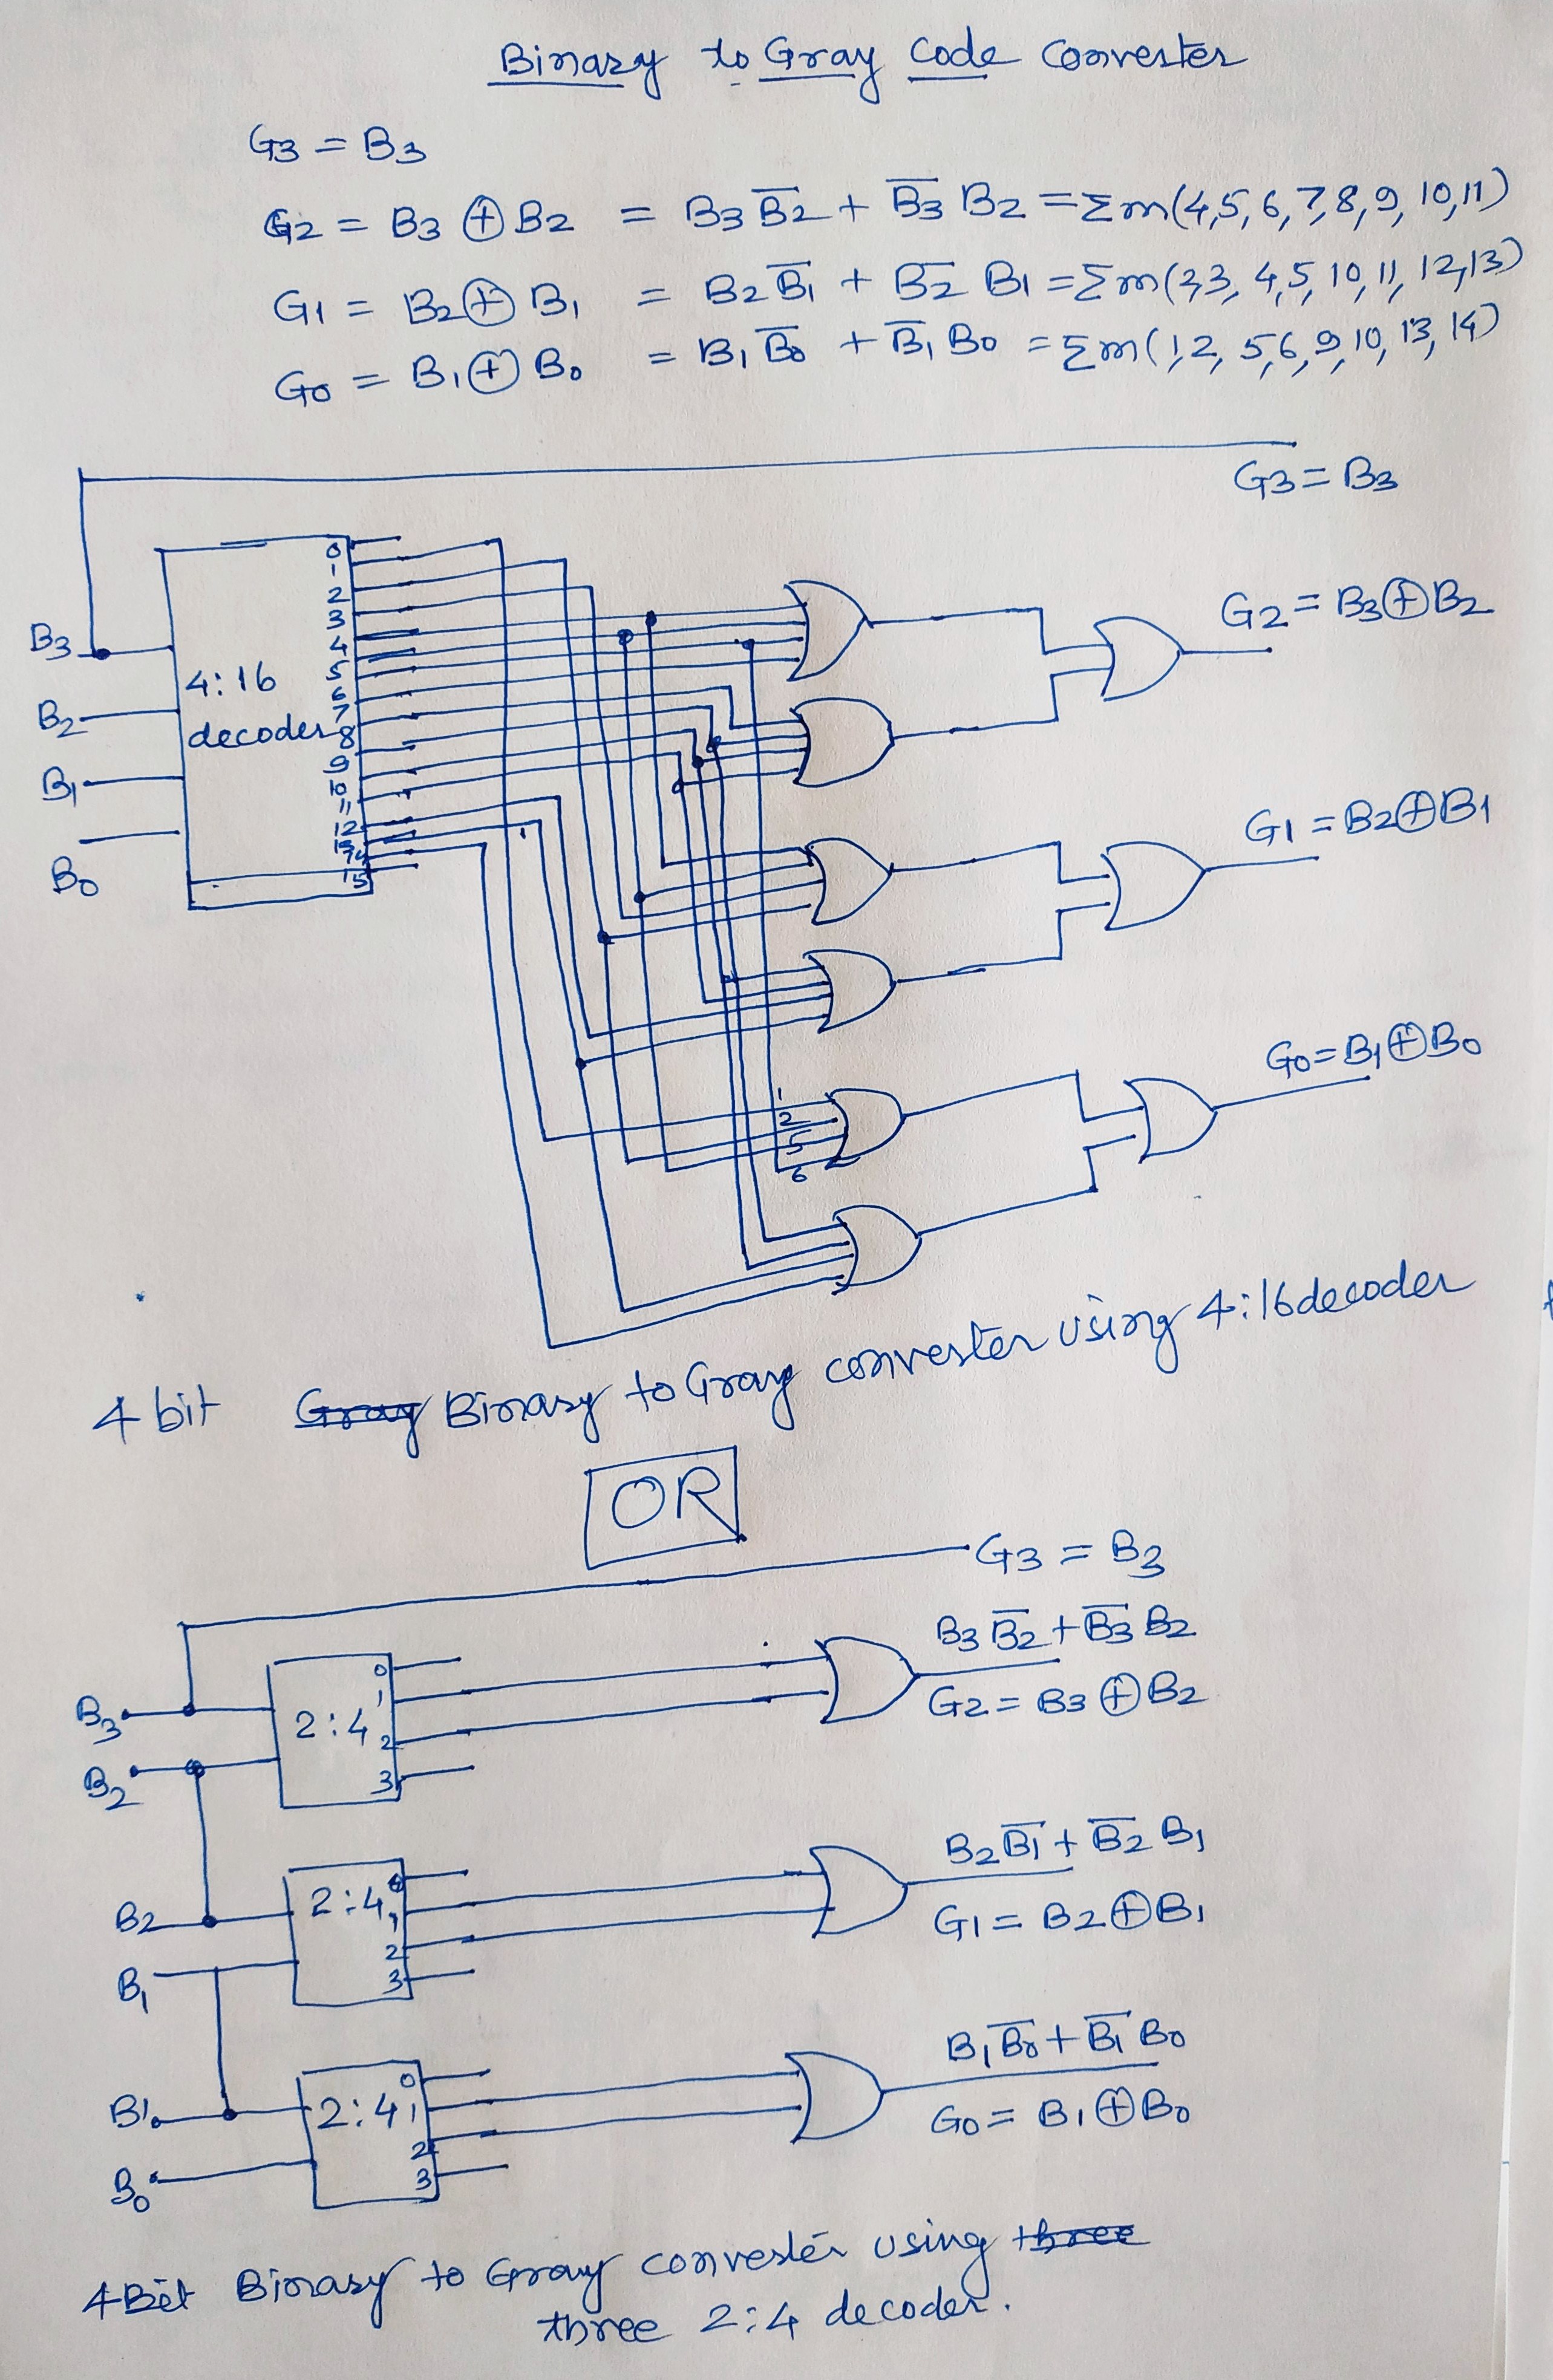 Binary to Gray Code Converter
G3 = B3
G2 = B3 ⊕ B2 = B3 B̅2̅ + B̅3̅ B2 = Σm(4,5,6,7,8,9,10,11)
G1 = B2 ⊕ B1 = B2 B̅1̅ + B̅2̅ B1 = Σm(2,3,4,5,10,11,12,13)
G0 = B1 ⊕ B0 = B1 B̅0̅ + B̅1̅ B0 = Σm(1,2,5,6,9,10,13,14)
G3 = B3
0
1
2
3
4
5
6
7
8
9
10
11
12
13
14
15
B3
B2
B1
B0
4:16
decoder
G2 = B3⊕B2
G1 = B2⊕B1
G0 = B1⊕B0
1
2
5
6
4 bit Gray Binary to Gray converter using 4:16 decoder
OR
G3 = B3
B3 B̅2̅ + B̅3̅ B2
G2 = B3 ⊕ B2
B3
B2
2:4
0
1
2
3
B2 B̅1̅ + B̅2̅ B1
G1 = B2 ⊕ B1
B2
B1
2:4
0
1
2
3
B1 B̅0̅ + B̅1̅ B0
G0 = B1 ⊕ B0
B1
B0
2:4
0
1
2
3
4 Bit Binary to Gray converter using three
three 2:4 decoder.